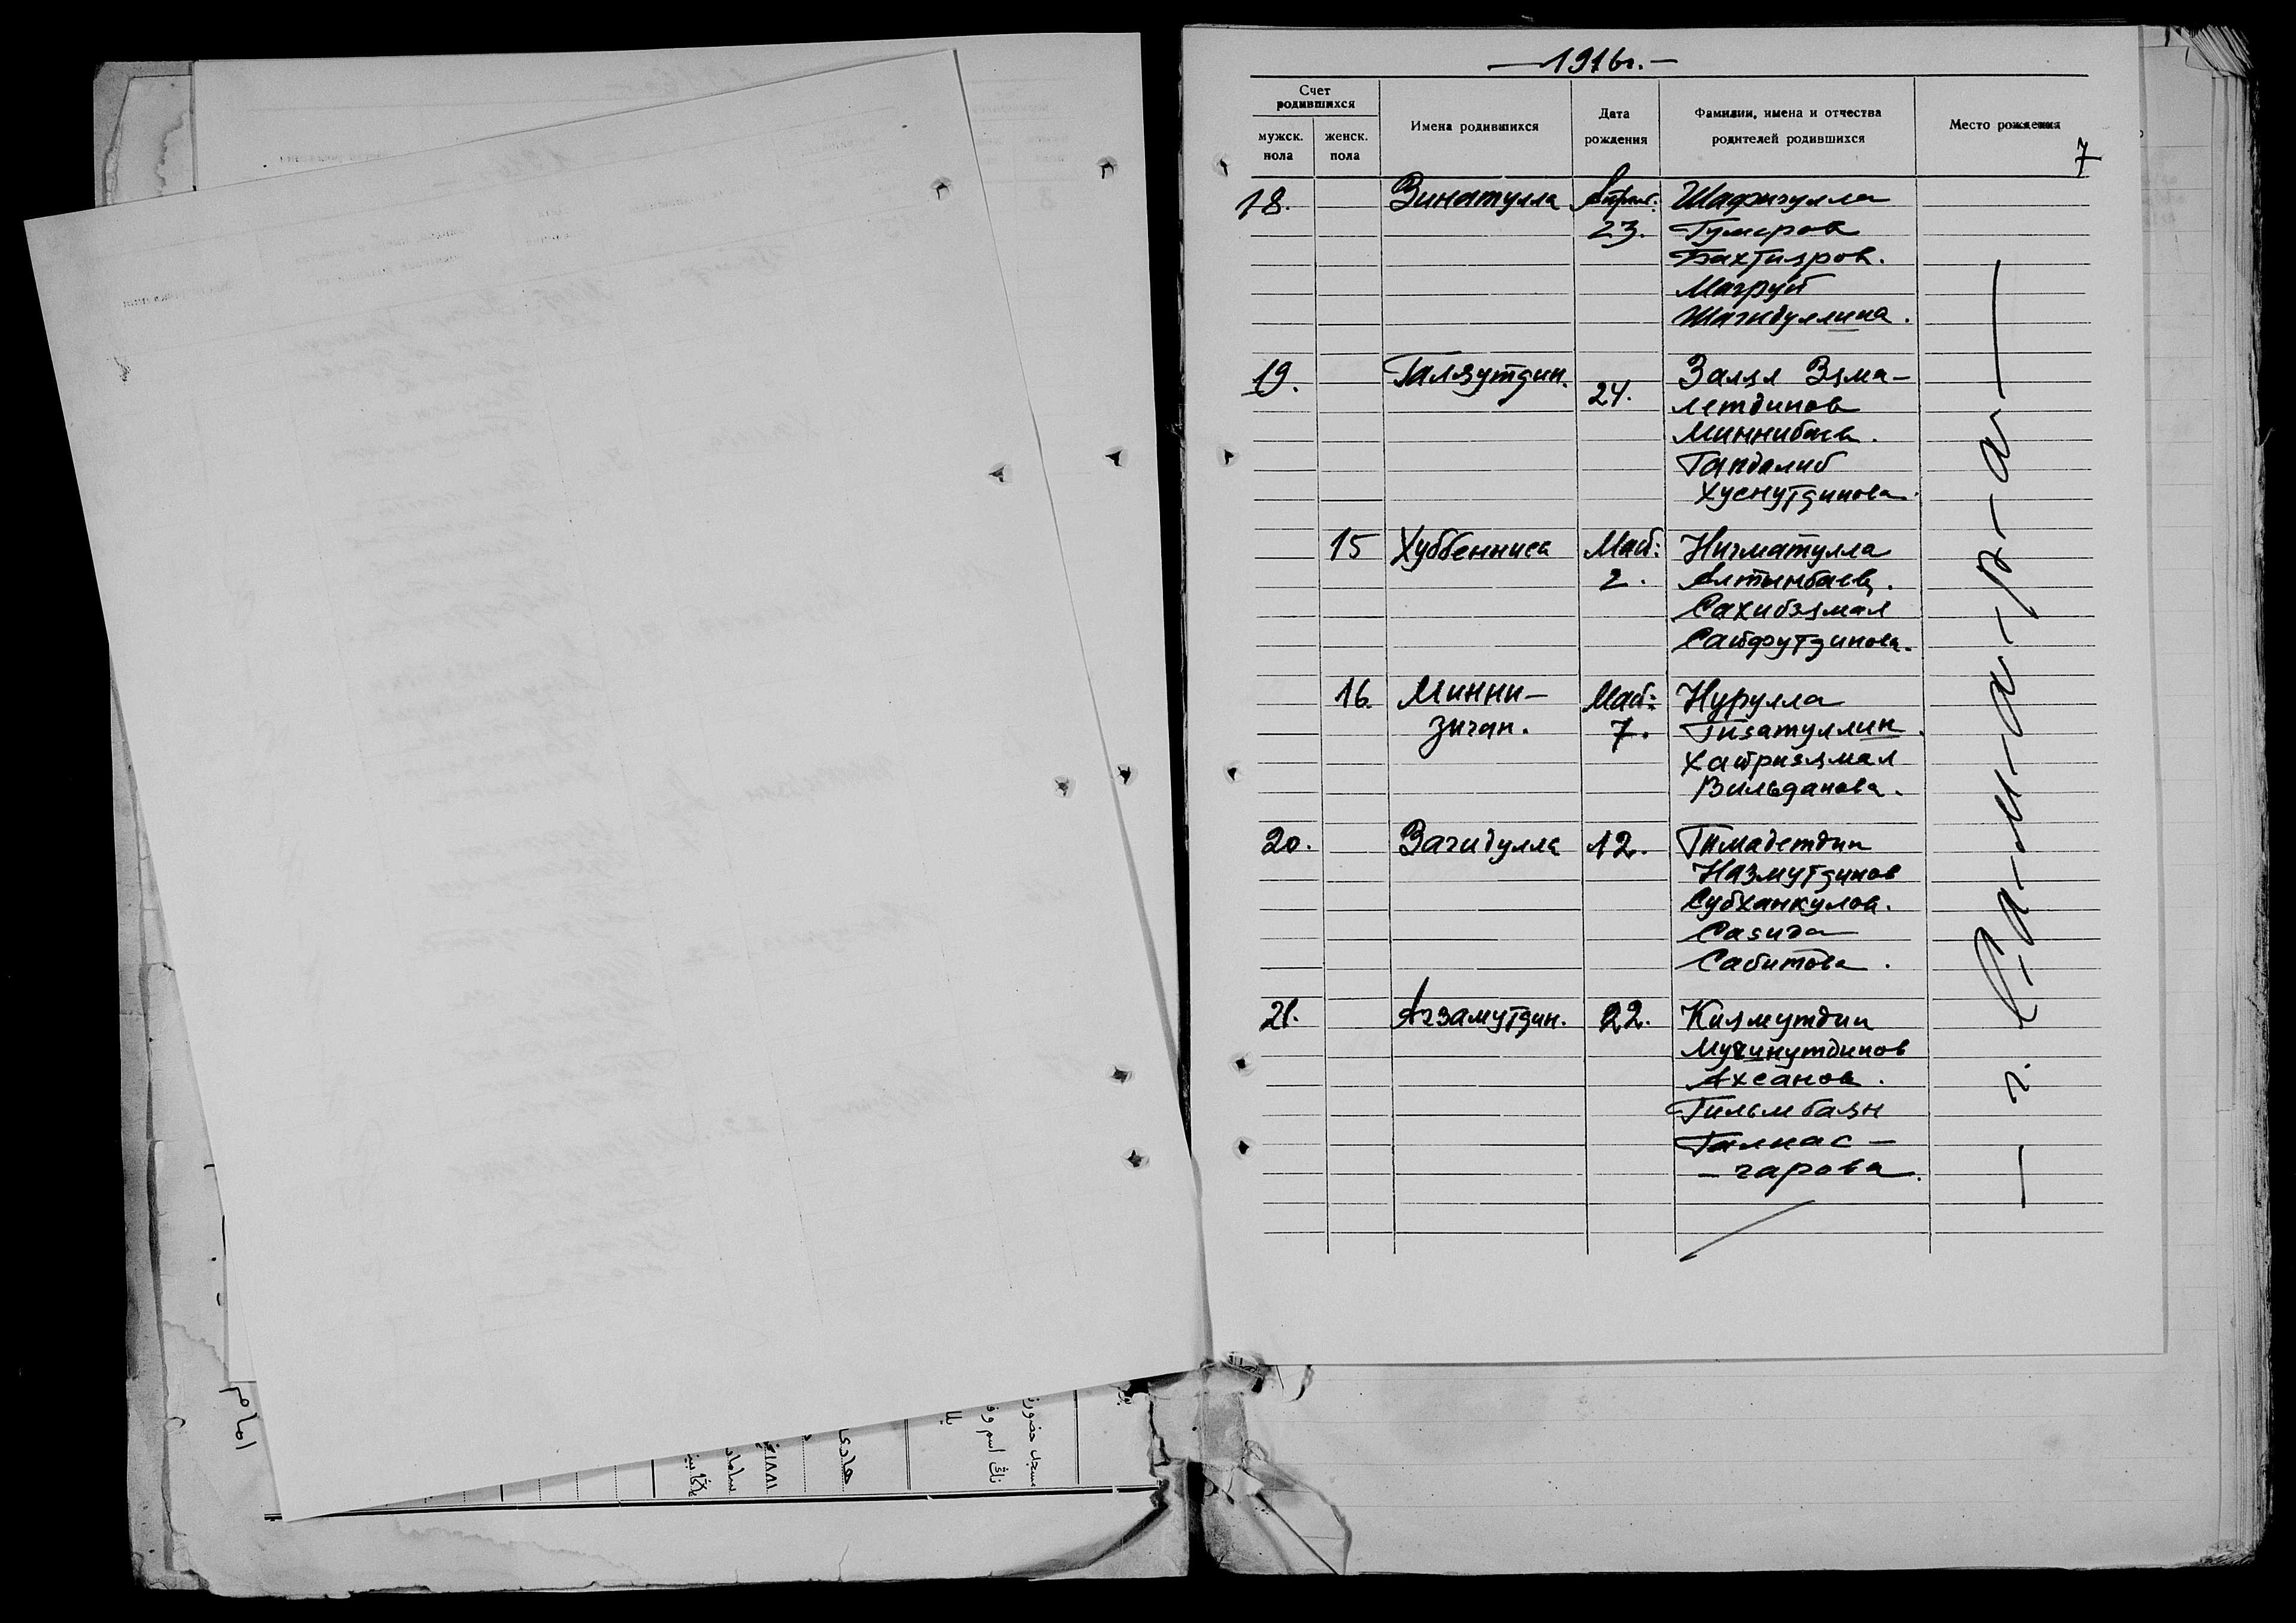 — 1916г. —
Счет родившихся
мужск. пола
женск. пола
Имена родившихся
Дата рождения
Фамилии, имена и отчества родителей родившихся
Место рождения
7
18. Зинатулла Апрель: Шафигулла
23. Гумеров
Бахтияров.
Магруй
Шагидуллина.
19. Галяутдин. 24. Залял Зяма-
летдинов
Миннибаев.
Хуснутдинова.
15 Хуббенниса Май: Нигматулла
2. Алтынбаев.
Сахибзямал
Сайфутдинова.
16. Минни- Май: Нурулла
зиган. 7. Гизатуллин.
Хайризямал
Вильданова.
20. Вагидулла 12. Гимадетдин
Назмутдинов
Субханкулов.
Сазида
Сабитова.
21. Агзамутдин. 22. Киямутдин
Мугинутдинов
Ахсанов.
Гильмбаян
Галиас-
- гарова.
— г. С-а-м-а-р-а —
امام
هادی